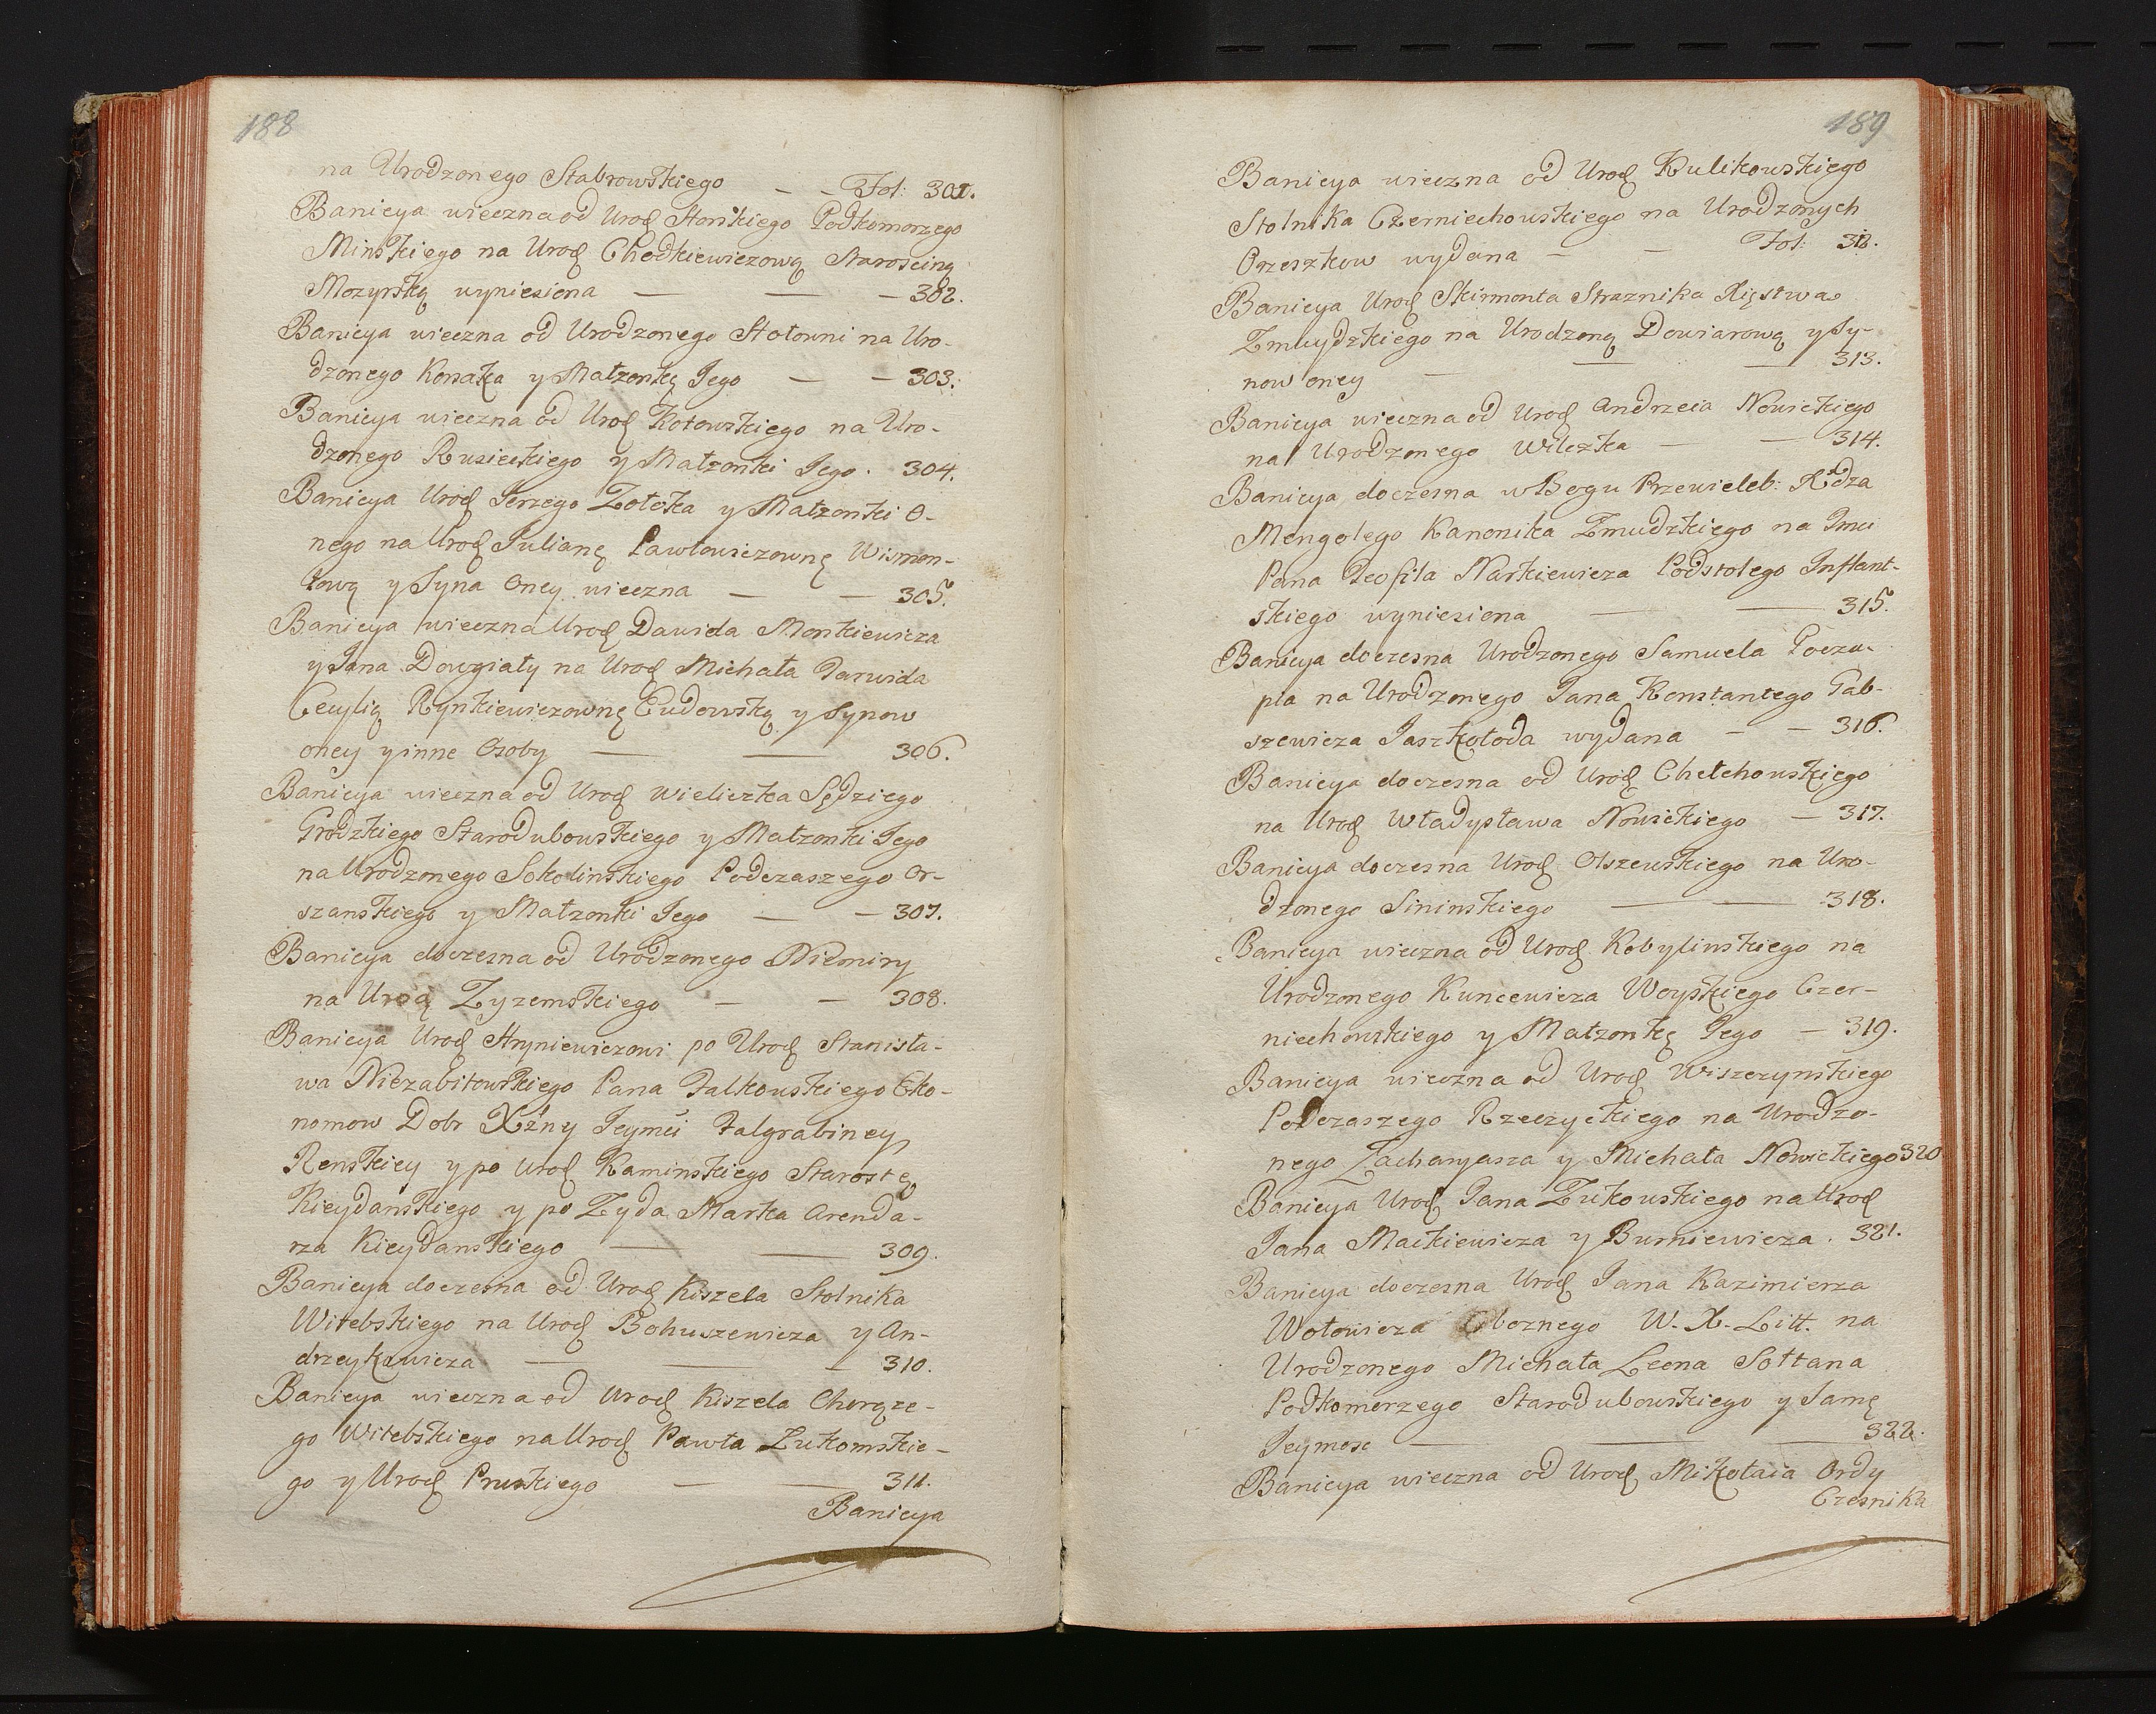 188
na Urodzonego Stabrowskiego — — Fol: 301.
Banicya wieczna od Urod Słońskiego Podkomorzego
Minskiego na Urod Chodkiewiczową Staroscinę
Mozyrską wyniesiona — — — 302.
Banicya wieczna od Urodzonego Stołowni na Uro-
dzonego Korsaka y Małżonkę Jego — — 303.
Banicya wieczna od Urod Kotowskiego na Uro-
dzonego Rusieckiego y Małżonki Jego. 304.
Banicya Urod Jerzego Zołotka y Małżonki O-
nego na Urod Julianę Pawłowiczownę Wismon-
tową y Syna Oney wieczna — — 305.
Banicya wieczna Urod Dawida Monkiewicza
y Jana Dowgiały na Urod Michała Darwida
Cecylią Rynkiewiczownę Cudowską y Synow
oney y inne Osoby — — 306.
Banicya wieczna od Urod Wieliczka Sędziego
Grodzkiego Starodubowskiego y Małżonki Jego
na Urodzonego Sokolinskiego Podczaszego Or-
szanskiego y Małżonki Jego — — 307.
Banicya doczesna od Urodzonego Niemiry
na Urod Zyzemskiego — — 308.
Banicya Urod Hryniewiczowi po Urod Stanisła-
wa Niezabitowskiego Pana Falkowskiego Eko-
nomow Dobr Xżny Jeymći Palgrabiney
Renskiey y po Urod Kaminskiego Starostę
Kieydanskiego y po Zyda Marka Arenda-
rza Kieydanskiego — — 309.
Banicya doczesna od Urod Kiszela Stolnika
Witebskiego na Urod Bohuszewicza y An-
drzeykowicza — — — 310.
Banicya wieczna od Urod Kiszela Chorąże-
go Witebskiego na Urod Pawła Łukomskie-
go y Urod Pruskiego — — 311.
Banicya
189
Banicya wieczna od Urod Kulikowskiego
Stolnika Czerniechowskiego na Urodzonych
Orzeszkow wydana — — Fol: 312.
Banicya Urod Skirmonta Straznika Xięstwa
Zmuydzkiego na Urodzoną Dowiarową y Sy-
now oney — — — 313.
Banicya wieczna od Urod Andrzeia Nowickiego
na Urodzonego Wilczka — — 314.
Banicya doczesna w Bogu Przewieleb: Xdza
Mengolego Kanonika Zmudzkiego na Jmci
Pana Teofila Narkiewicza Podstolego Inflant-
skiego wyniesiona — — 315.
Banicya doczesna Urodzonego Samuela Pocza-
pia na Urodzonego Jana Konstantego Gab-
szewicza Jaszkołoda wydana — — 316.
Banicya doczesna od Urod Chełchowskiego
na Urod Władysława Nowickiego — 317.
Banicya doczesna Urod Olszewskiego na Uro-
dzonego Sininskiego — — 318.
Banicya wieczna od Urod Kobylinskiego na
Urodzonego Kuncewicza Woyskiego Czer-
niechowskiego y Małżonkę Jego — 319.
Banicya wieczna od Urod Wiszczynskiego
Podczaszego Rzeczyckiego na Urodzo-
nego Zacharyasza y Michała Nowickiego 320
Banicya Urod Jana Zukowskiego na Urod
Jana Mackiewicza y Burniewicza. 321.
Banicya doczesna Urod Jana Kazimierza
Wołowicza Oboznego W. X. Litt. na
Urodzonego Michała Leona Sołtana
Podkomorzego Starodubowskiego y Samę
Jeymosc — — — 322.
Banicya wieczna od Urod Mikołaia Ordy
Czesnika